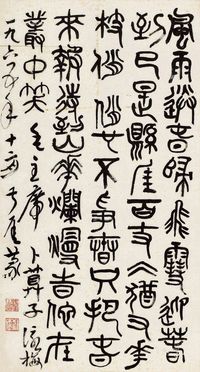 風雨送春歸飛雪迎春
到已是縣崖百丈仌猶又花
枝俏俏也不爭春只把春
來報待到山花爛漫時他在
叢中笑 毛主席卜算子 詠梅
一九六五年十二月篆